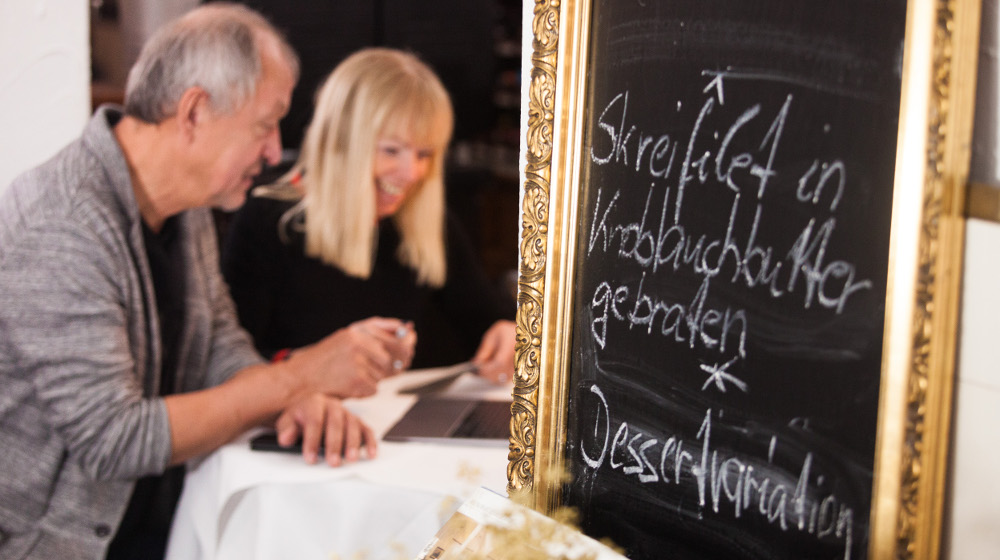 *
Skreifilet in
Knoblauchbutter
gebraten
*
Dessertvariation